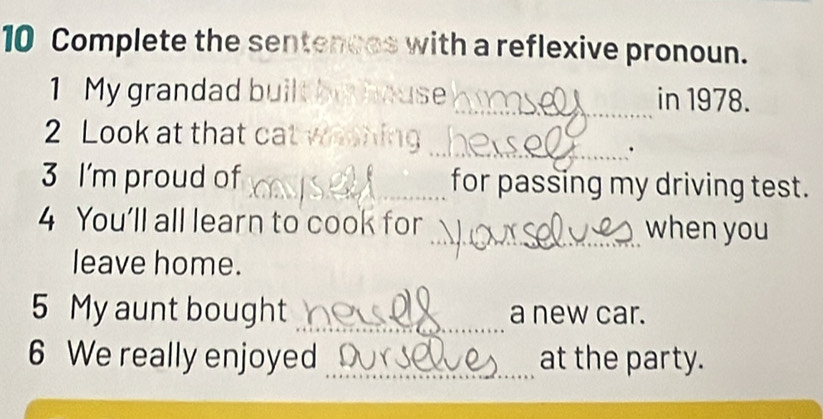 10 Complete the sentences with a reflexive pronoun.
1 My grandad built house himself in 1978.
2 Look at that cat washing herself.
3 I'm proud of myself for passing my driving test.
4 You'll all learn to cook for yourselves when you
leave home.
5 My aunt bought herself a new car.
6 We really enjoyed ourselves at the party.